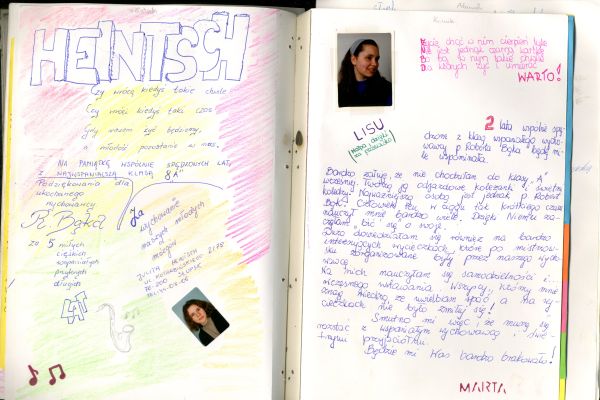 HEINTSCH
Czy wrócą kiedyś takie chwile
Czy wróci kiedyś taki czas
Gdy razem żyć będziemy,
a młodość pozostanie w nas.
NA PAMIĄTKĘ WSPÓLNIE SPĘDZONYCH LAT
Z NAJWSPANIALSZĄ KLASĄ 8 "A"
Podziękowania dla
ukochanego
wychowawcy
R. Bąka
za
wychowanie
małych młodych
za 5 miłych
ciężkich
wspaniałych
przykrych
długich
LAT
JULITA HEINTSCH
76-200 SŁUPSK
Życie choć w nim cierpień tyle
Nie jest jednak czarną kartką
Bo są w nim takie chwile
Dla których żyć i umierać
WARTO!
LISU
2 lata wspólnie spę-
dzone z klasą wspaniałego wycho-
wawcy p. Roberta Bąka będę mi-
le wspominała.
Bardzo żałuję, że nie chodziłam do klasy "A"
wcześniej. Tworzą ją odjazdowe koleżanki i świetni
koledzy. Najważniejszą osobą jest jednak p. Robert
Bąk. Człowiek ten w ciągu tak krótkiego czasu
nauczył mnie bardzo wiele. Dzięki Niemu za-
częłam być się o swoje.
Dużo dowiedziałam się również na bardzo
interesujących wycieczkach, które po mistrzow-
sku zorganizowane były przez naszego wycho-
wawcę.
Na nich nauczyłam się samodzielności i...
wczesnego wstawania. Wszyscy, którzy mnie
znają wiedzą, że uwielbiam spać a na wy-
cieczkach nie było zmiłuj się!
Smutno mi więc, że muszę się
rozstać z wspaniałym wychowawcą i świe-
tnymi przyjaciółmi.
Będzie mi Was bardzo brakowało!
MARTA